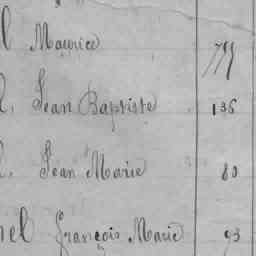 l Maurice
l. Jean Baptiste 136
l. Jean Marie 80
nel François Marie 93